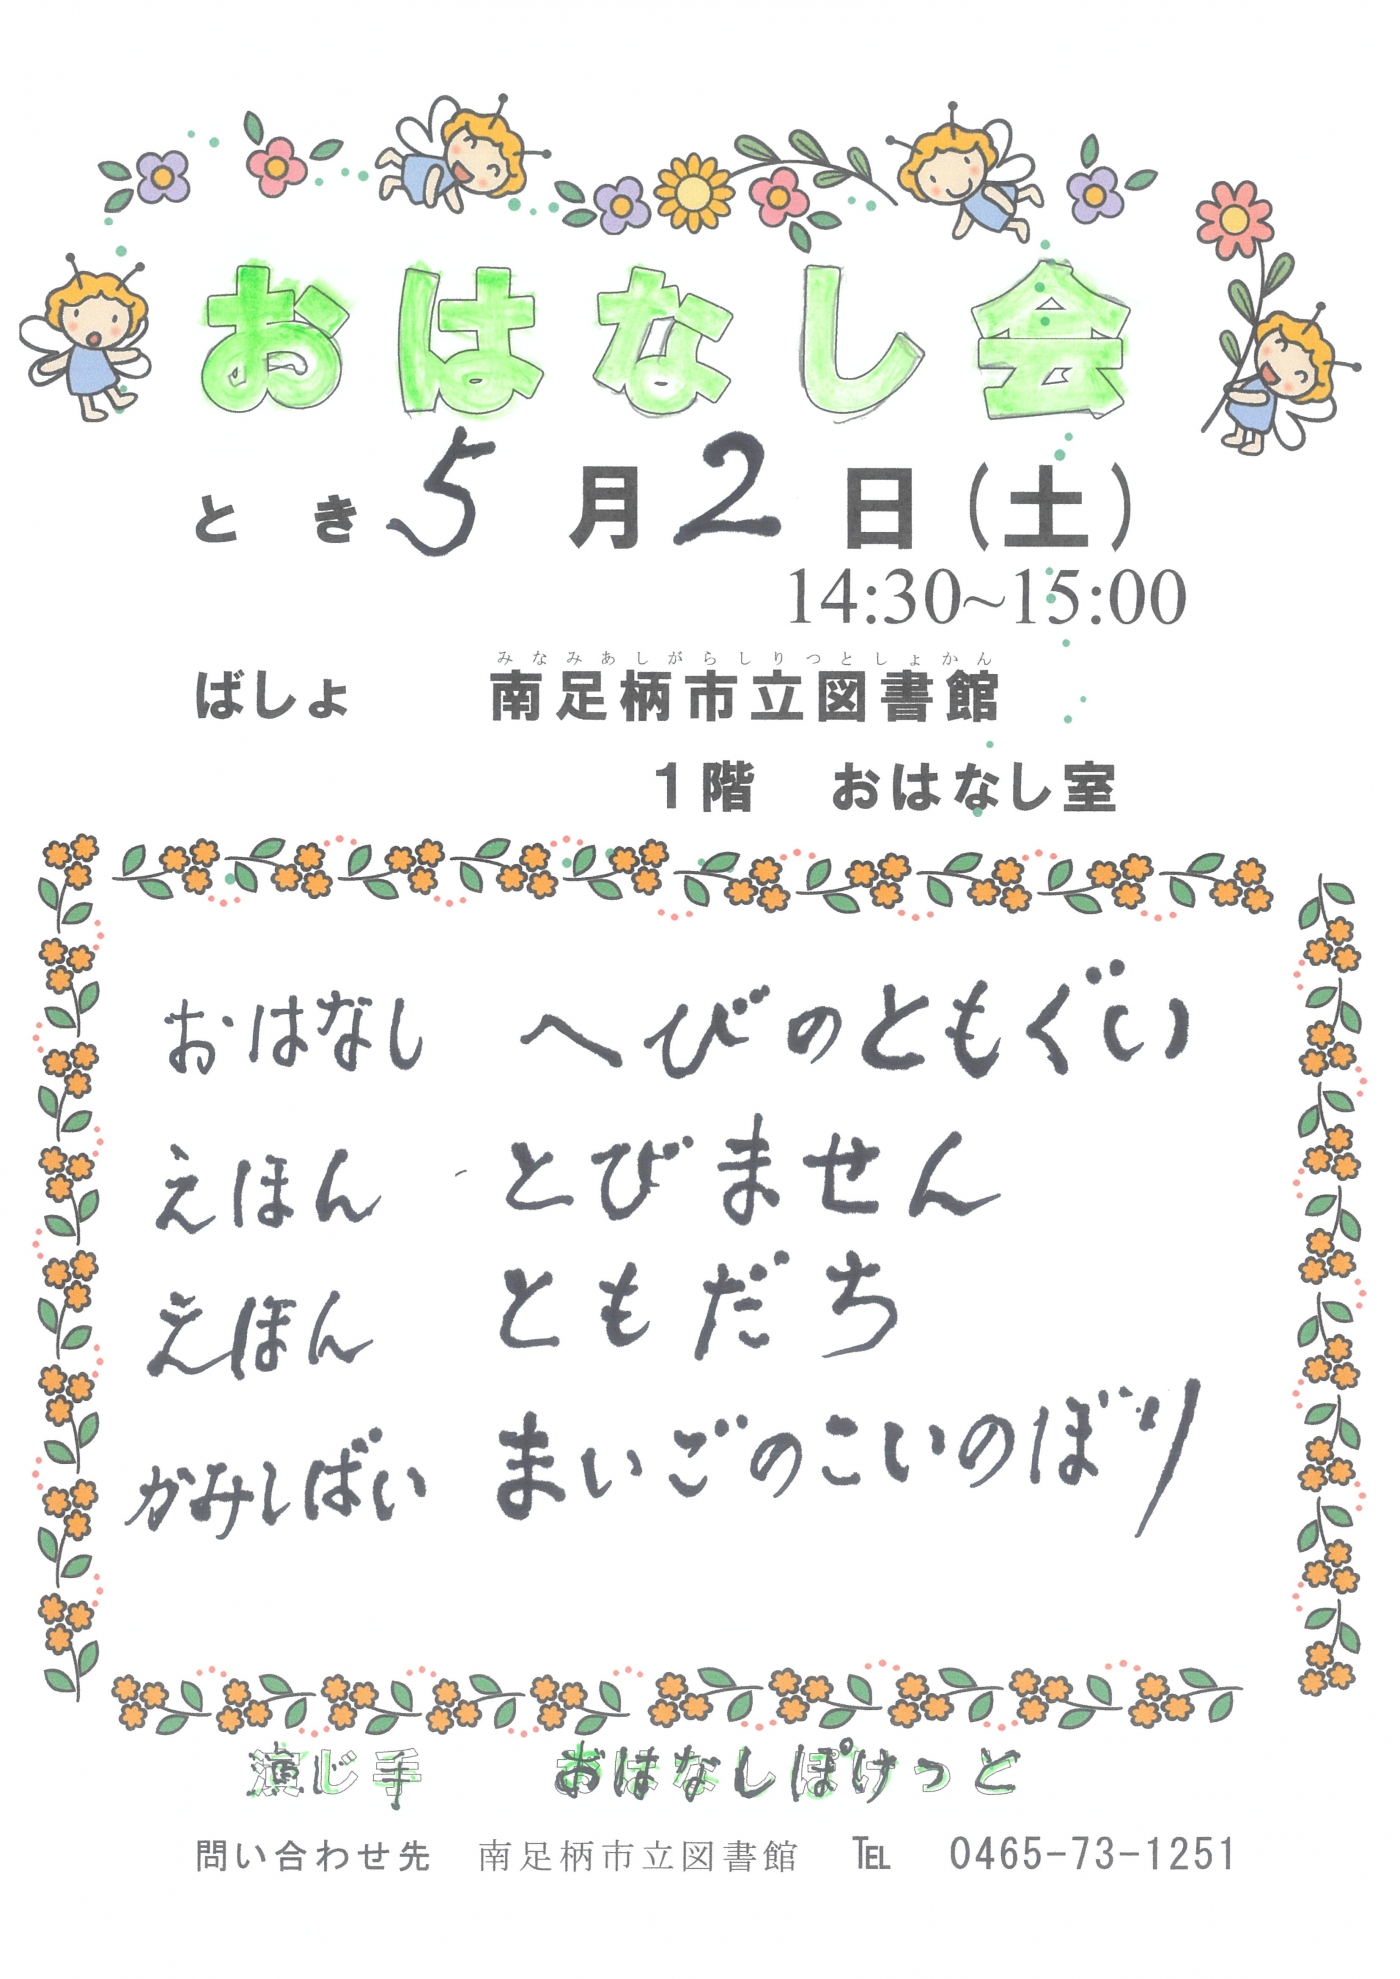 おはなし会
とき 5月2日(土)
14:30~15:00
みなみあしがらしりつとしょかん
ばしょ 南足柄市立図書館
1階 おはなし室
おはなし へびのともぐい
えほん とびません
えほん ともだち
かみしばい まいごのこいのぼり
演じ手 おはなしぽけっと
問い合わせ先 南足柄市立図書館 ℡ 0465-73-1251